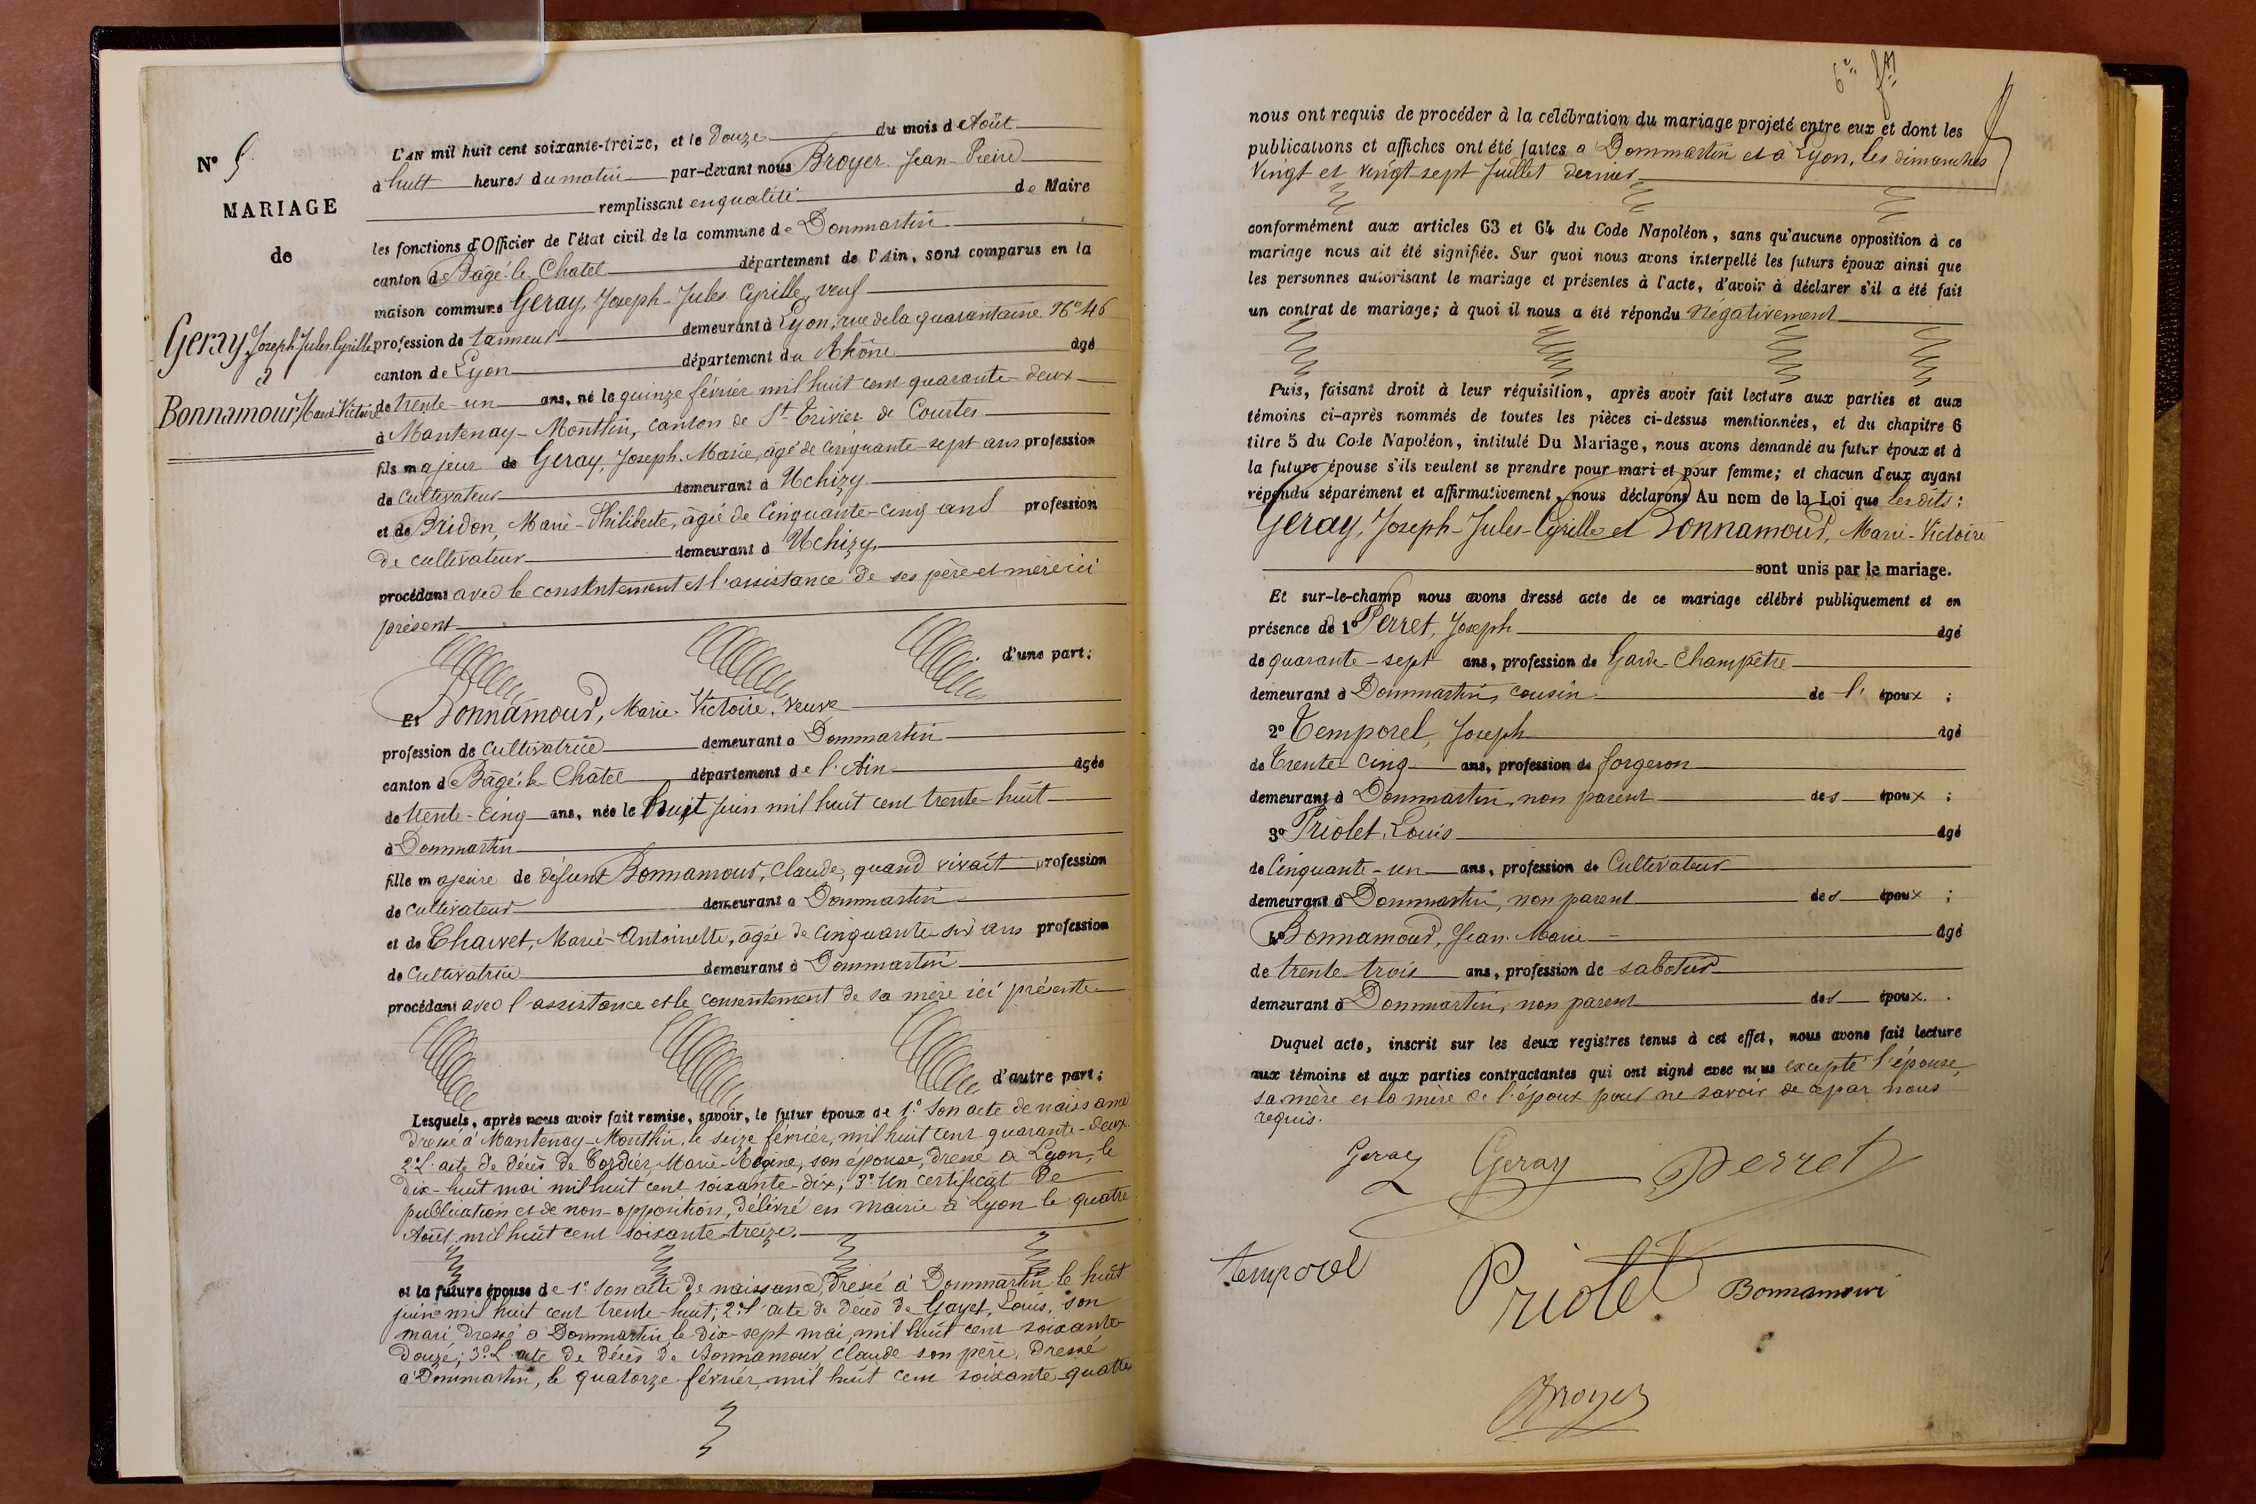 N° 5
MARIAGE
de
Geray, Joseph Jules Cyrille
à
Bonnamour, Marie Victoire
L'AN mil huit cent soixante-treize, et le Douze du mois d'Août
à huit heures du matin par-devant nous Broyer Jean-Pierre
remplissant en qualité de Maire
les fonctions d'Officier de l'état civil de la commune de Dommartin
canton de Bâgé-le-Chatel département de l'Ain, sont comparus en la
maison commune Geray, Joseph-Jules-Cyrille, veuf
profession de tanneur demeurant à Lyon, rue de la quarantaine N° 46
canton de Lyon département du Rhône âgé
de trente-un ans, né le quinze février mil huit cent quarante-deux
à Mantenay-Montlin, canton de St Trivier de Courtes
fils majeur de Geray, Joseph-Marie, âgé de cinquante-sept ans profession
de cultivateur demeurant à Uchizy
et de Bridon, Marie-Philiberte, âgée de Cinquante-cinq ans profession
de cultivateur demeurant à Uchizy,
procédant avec le consentement et l'assistance de ses père et mère ici
présent
d'une part;
Et Bonnamour, Marie-Victoire, veuve
profession de cultivatrice demeurant à Dommartin
canton de Bâgé-le-Châtel département de l'Ain âgée
de trente-cinq ans, née le huit juin mil huit cent trente-huit
à Dommartin
fille majeure de défunt Bonnamour, Claude, quand vivait profession
de cultivateur demeurant à Dommartin
et de Chavet, Marie-Antoinette, âgée de cinquante-six ans profession
de cultivatrice demeurant à Dommartin
procédant avec l'assistance et le consentement de sa mère ici présente
d'autre part;
Lesquels, après nous avoir fait remise, savoir, le futur époux de 1° Son acte de naissance
dressé à Mantenay-Montlin, le seize février, mil huit cent quarante-deux.
2° L'acte de décès de Cordier, Marie-Régine, son épouse, dressé à Lyon, le
dix-huit mai mil huit cent soixante-dix; 3° Un certificat de
publication et de non-opposition, délivré en mairie à Lyon le quatre
Août mil huit cent soixante treize.
et la future épouse de 1° Son acte de naissance, dressé à Dommartin le huit
juin mil huit cent trente-huit; 2° L'acte de décès de Gayet, Louis, son
mari, dressé à Dommartin, le dix-sept mai, mil huit cent soixante-
douze; 3° L'acte de décès de Bonnamour Claude son père, dressé
à Dommartin, le quatorze février, mil huit cent soixante-quatre
6e ft
nous ont requis de procéder à la célébration du mariage projeté entre eux et dont les
publications et affiches ont été faites à Dommartin et à Lyon, les dimanches
Vingt et vingt-sept Juillet dernier
conformément aux articles 63 et 64 du Code Napoléon, sans qu'aucune opposition à ce
mariage nous ait été signifiée. Sur quoi nous avons interpellé les futurs époux ainsi que
les personnes autorisant le mariage et présentes à l'acte, d'avoir à déclarer s'il a été fait
un contrat de mariage; à quoi il nous a été répondu Négativement
Puis, faisant droit à leur réquisition, après avoir fait lecture aux parties et aux
témoins ci-après nommés de toutes les pièces ci-dessus mentionnées, et du chapitre 6
titre 5 du Code Napoléon, intitulé Du Mariage, nous avons demandé au futur époux et à
la future épouse s'ils veulent se prendre pour mari et pour femme; et chacun d'eux ayant
répondu séparément et affirmativement, nous déclarons Au nom de la Loi que Les dits:
Geray, Joseph-Jules-Cyrille et Bonnamour, Marie-Victoire
sont unis par le mariage.
Et sur-le-champ nous avons dressé acte de ce mariage célébré publiquement et en
présence de 1° Perret, Joseph âgé
de quarante-sept ans, profession de Garde-Champêtre
demeurant à Dommartin, cousin de l' époux ;
2° Temporel, Joseph âgé
de Trente-Cinq ans, profession de forgeron
demeurant à Dommartin, non parent des époux ;
3° Priolet, Louis âgé
de Cinquante-un ans, profession de Cultivateur
demeurant à Dommartin, non parent des époux ;
4° Bonnamour, Jean-Marie âgé
de trente-trois ans, profession de sabotier
demeurant à Dommartin, non parent des époux.
Duquel acte, inscrit sur les deux registres tenus à cet effet, nous avons fait lecture
aux témoins et aux parties contractantes qui ont signé avec nous excepté l'épouse,
sa mère et la mère de l'époux pour ne savoir de ce par nous
requis.
Geray Geray Perret
temporel Priolet Bonnamour
Broyer